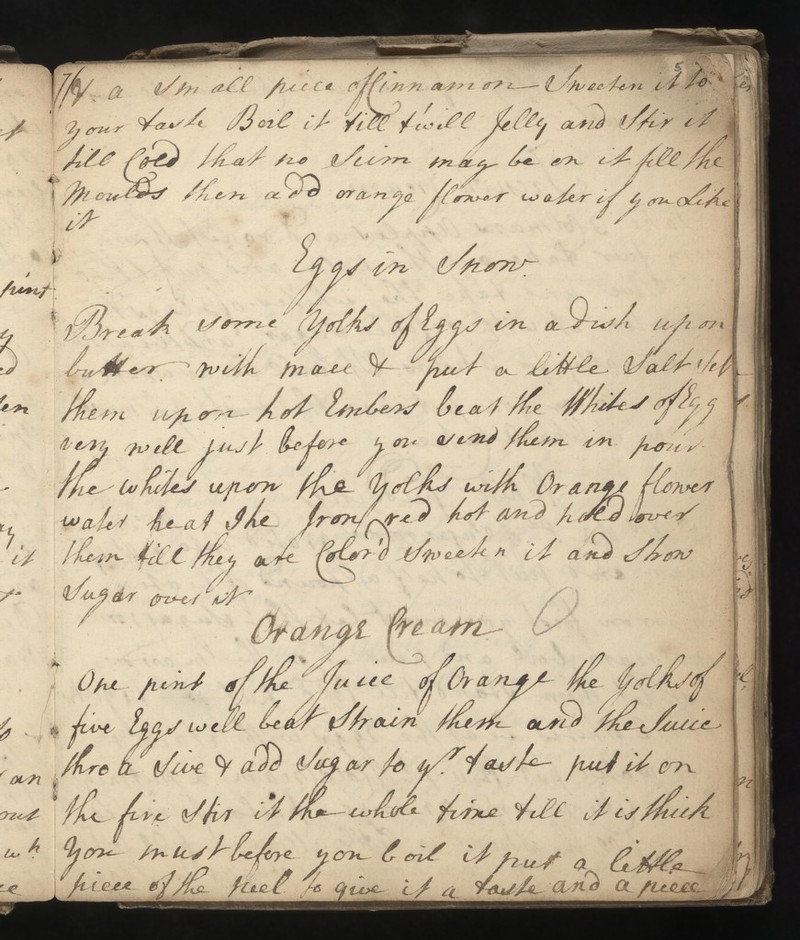 5
& a small piece of Cinnamon Sweeten it to
your taste Boil it till t'will Jelly and Stir it
till Cold that no Scim may be on it fill the
Moulds then add orange flower water if you Like
it
Eggs in Snow
Break some Yolks of Eggs in a dish upon
butter with mace & put a little Salt set
them upon hot Embers beat the Whites of Egg
very well just before you send them in pour
the whites upon the Yolks with Orange flower
water heat the Iron red hot and hold over
them till they are Color'd sweeten it and Strow
Sugar over it
Orange Cream
One pint of the Juice of Orange the Yolks of
five Eggs well beat Strain them and the Juice
thro a Sive & add Sugar to yr. taste put it on
the fire Stir it the whole time till it is thick
You must before you boil it put a little
piece of the peel to give it a taste and a piece